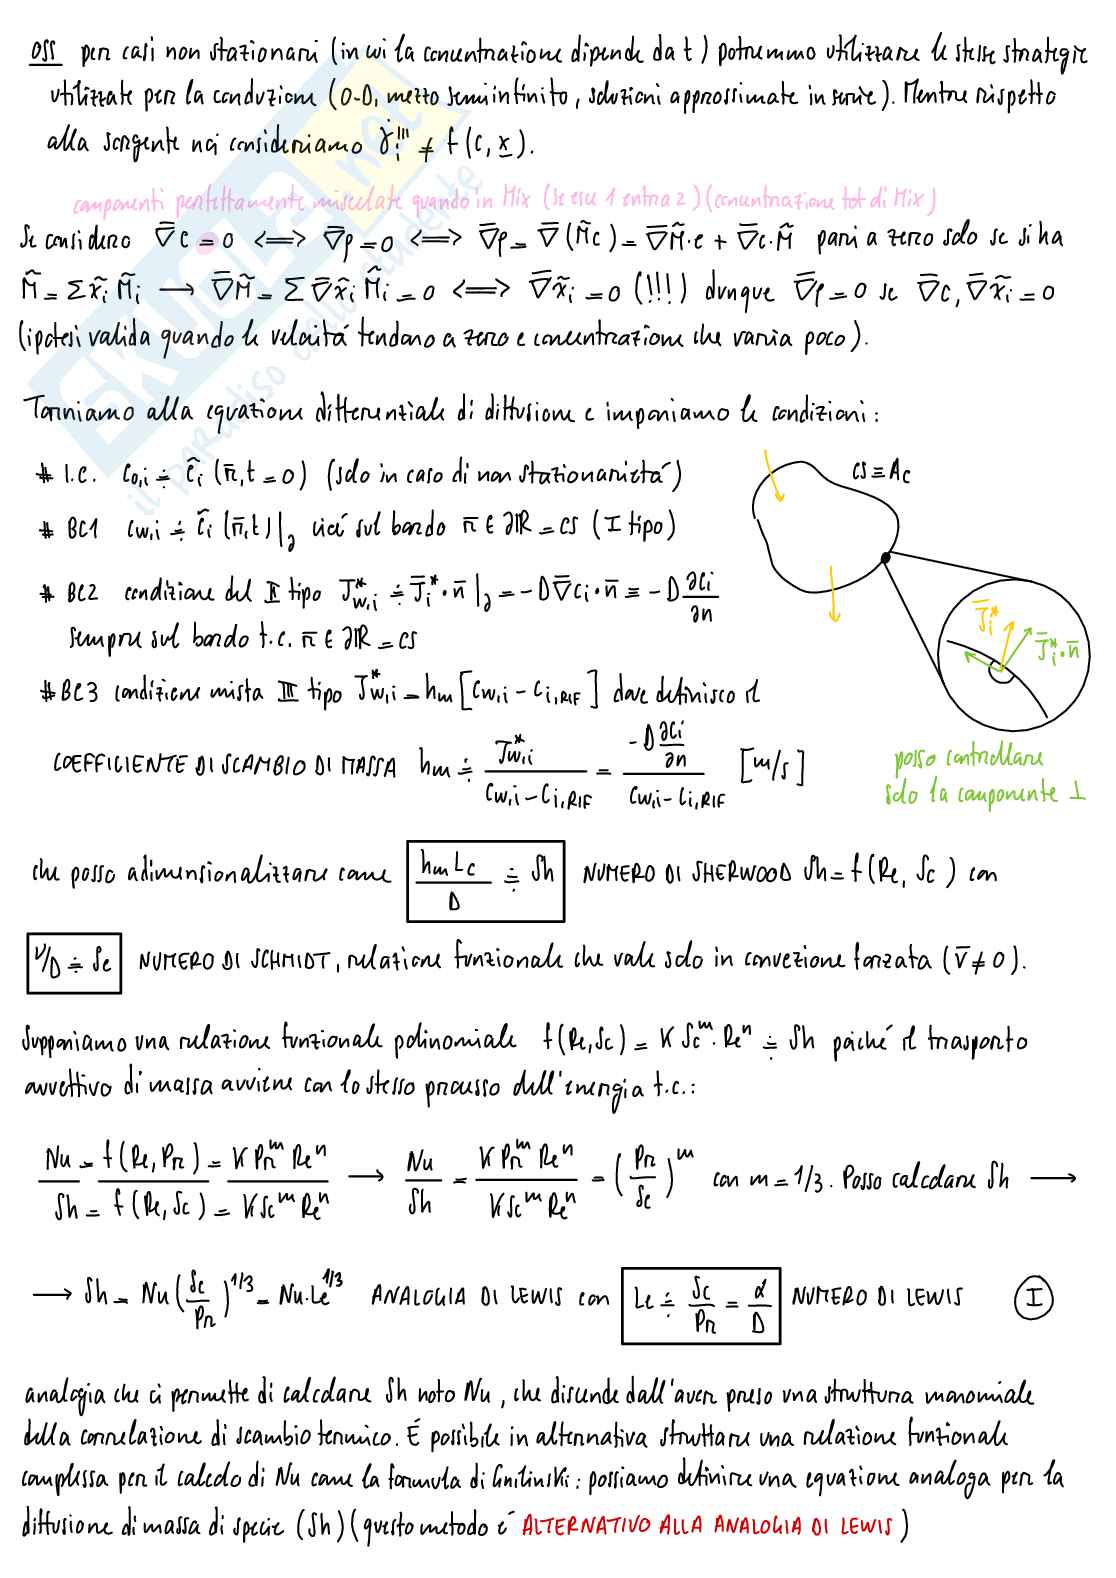 OSS per casi non stazionari (in cui la concentrazione dipende da t) potremmo utilizzare le stesse strategie
utilizzate per la conduzione (0-D, mezzo semiinfinito, soluzioni approssimate in serie). Mentre rispetto
alla sorgente noi consideriamo γ̇ᵢ''' ≠ f(c, x).
componenti perfettamente miscelate quando in Mix (se esce 1 entra 2) (concentrazione tot di Mix)
Se considero ∇̄c = 0 <=> ∇̄ρ = 0 <=> ∇̄ρ = ∇̄(M̃c) = ∇̄M̃·c + ∇̄c·M̃ pari a zero solo se si ha
M̃ = Σx̃ᵢM̃ᵢ → ∇̄M̃ = Σ∇̄x̃ᵢM̃ᵢ = 0 <=> ∇̄x̃ᵢ = 0 (!!!) dunque ∇̄ρ = 0 se ∇̄c, ∇̄x̃ᵢ = 0
(ipotesi valida quando le velocità tendono a zero e concentrazione che varia poco).
Torniamo alla equazione differenziale di diffusione e imponiamo le condizioni:
# I.C. C₀,ᵢ ≐ ĉᵢ(r̄, t=0) (solo in caso di non stazionarietà)
# BC1 Cw,i ≐ ĉᵢ(r̄,t)|∂ cioè sul bordo r̄ ∈ ∂R = CS (I tipo)
# BC2 condizione del II tipo J*w,i ≐ J̄ᵢ*·n̄|∂ = -D∇̄cᵢ·n̄ ≡ -D ∂cᵢ/∂n
sempre sul bordo t.c. r̄ ∈ ∂R = CS
# BC3 condizione mista III tipo J*w,i = hm[Cw,i - Ci,RIF] dove definisco il
COEFFICIENTE DI SCAMBIO DI MASSA hm ≐ J*w,i / (Cw,i - Ci,RIF) = (-D ∂cᵢ/∂n) / (Cw,i - Ci,RIF) [m/s]
CS ≡ Ac
J̄ᵢ*
J̄ᵢ*·n̄
posso controllare
solo la componente ⊥
che posso adimensionalizzare come hm Lc / D ≐ Sh NUMERO DI SHERWOOD Sh = f(Re, Sc) con
ν/D ≐ Sc NUMERO DI SCHMIDT, relazione funzionale che vale solo in convezione forzata (v̄ ≠ 0).
Supponiamo una relazione funzionale polinomiale f(Re,Sc) = K Scᵐ·Reⁿ ≐ Sh poiché il trasporto
avvettivo di massa avviene con lo stesso processo dell'energia t.c.:
Nu/Sh = f(Re,Pr)/f(Re,Sc) = K Prᵐ Reⁿ / K Scᵐ Reⁿ → Nu/Sh = K Prᵐ Reⁿ / K Scᵐ Reⁿ = (Pr/Sc)ᵐ con m = 1/3. Posso calcolare Sh →
→ Sh = Nu(Sc/Pr)^1/3 = Nu·Le^1/3 ANALOGIA DI LEWIS con Le ≐ Sc/Pr = α/D NUMERO DI LEWIS I
analogia che ci permette di calcolare Sh noto Nu, che discende dall'aver preso una struttura monomiale
della correlazione di scambio termico. É possibile in alternativa sfruttare una relazione funzionale
complessa per il calcolo di Nu come la formula di Gnilinski: possiamo definire una equazione analoga per la
diffusione di massa di specie (Sh) (questo metodo é ALTERNATIVO ALLA ANALOGIA DI LEWIS)
SKUOLA.net
il paradiso dello studente